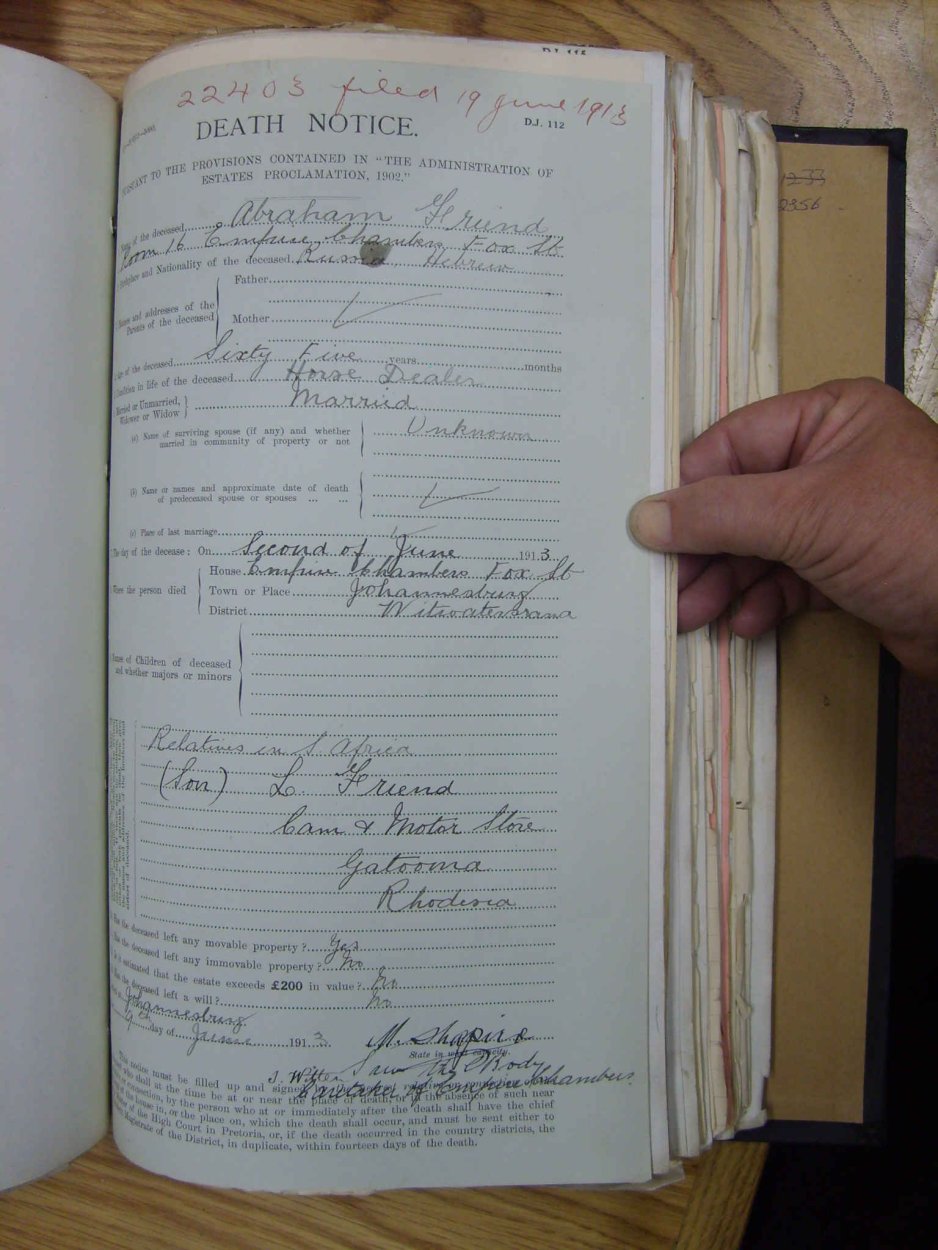 D.J. 112
22403 filed 19 June 1913
DEATH NOTICE.
D.J. 112
TO THE PROVISIONS CONTAINED IN "THE ADMINISTRATION OF
ESTATES PROCLAMATION, 1902."
1233
2356
of the deceased Abraham Friend
Room 16 Empire Chambers Fox St
Birthplace and Nationality of the deceased Russia, Hebrew
Names and addresses of the
Parents of the deceased
Father
Mother
Age of the deceased Sixty Five years months
Condition in life of the deceased Horse Dealer
Married or Unmarried,
Widower or Widow
Married
(a) Name of surviving spouse (if any) and whether
married in community of property or not
Unknown
(b) Name or names and approximate date of death
of predeceased spouse or spouses ... ...
(c) Place of last marriage
The day of the decease: On Second of June 1913
Where the person died
House Empire Chambers Fox St
Town or Place Johannesburg
District Witwatersrand
Names of Children of deceased
and whether majors or minors
Relatives in S Africa
(Son) L. Friend
Cam & Motor Store
Gatooma
Rhodesia
Has the deceased left any movable property? Yes
Has the deceased left any immovable property? No
Is it estimated that the estate exceeds £200 in value? No
Has the deceased left a will? No
Johannesburg
9 day of June 1913.
M. Shapiro
State in what capacity.
I saw the Body
Caretaker of Empire Chambers
This notice must be filled up and signed
who shall at the time be at or near the place of death, or in the absence of such near
or connection, by the person who at or immediately after the death shall have the chief
of the house in, or the place on, which the death shall occur, and must be sent either to
of the High Court in Pretoria, or, if the death occurred in the country districts, the
Magistrate of the District, in duplicate, within fourteen days of the death.